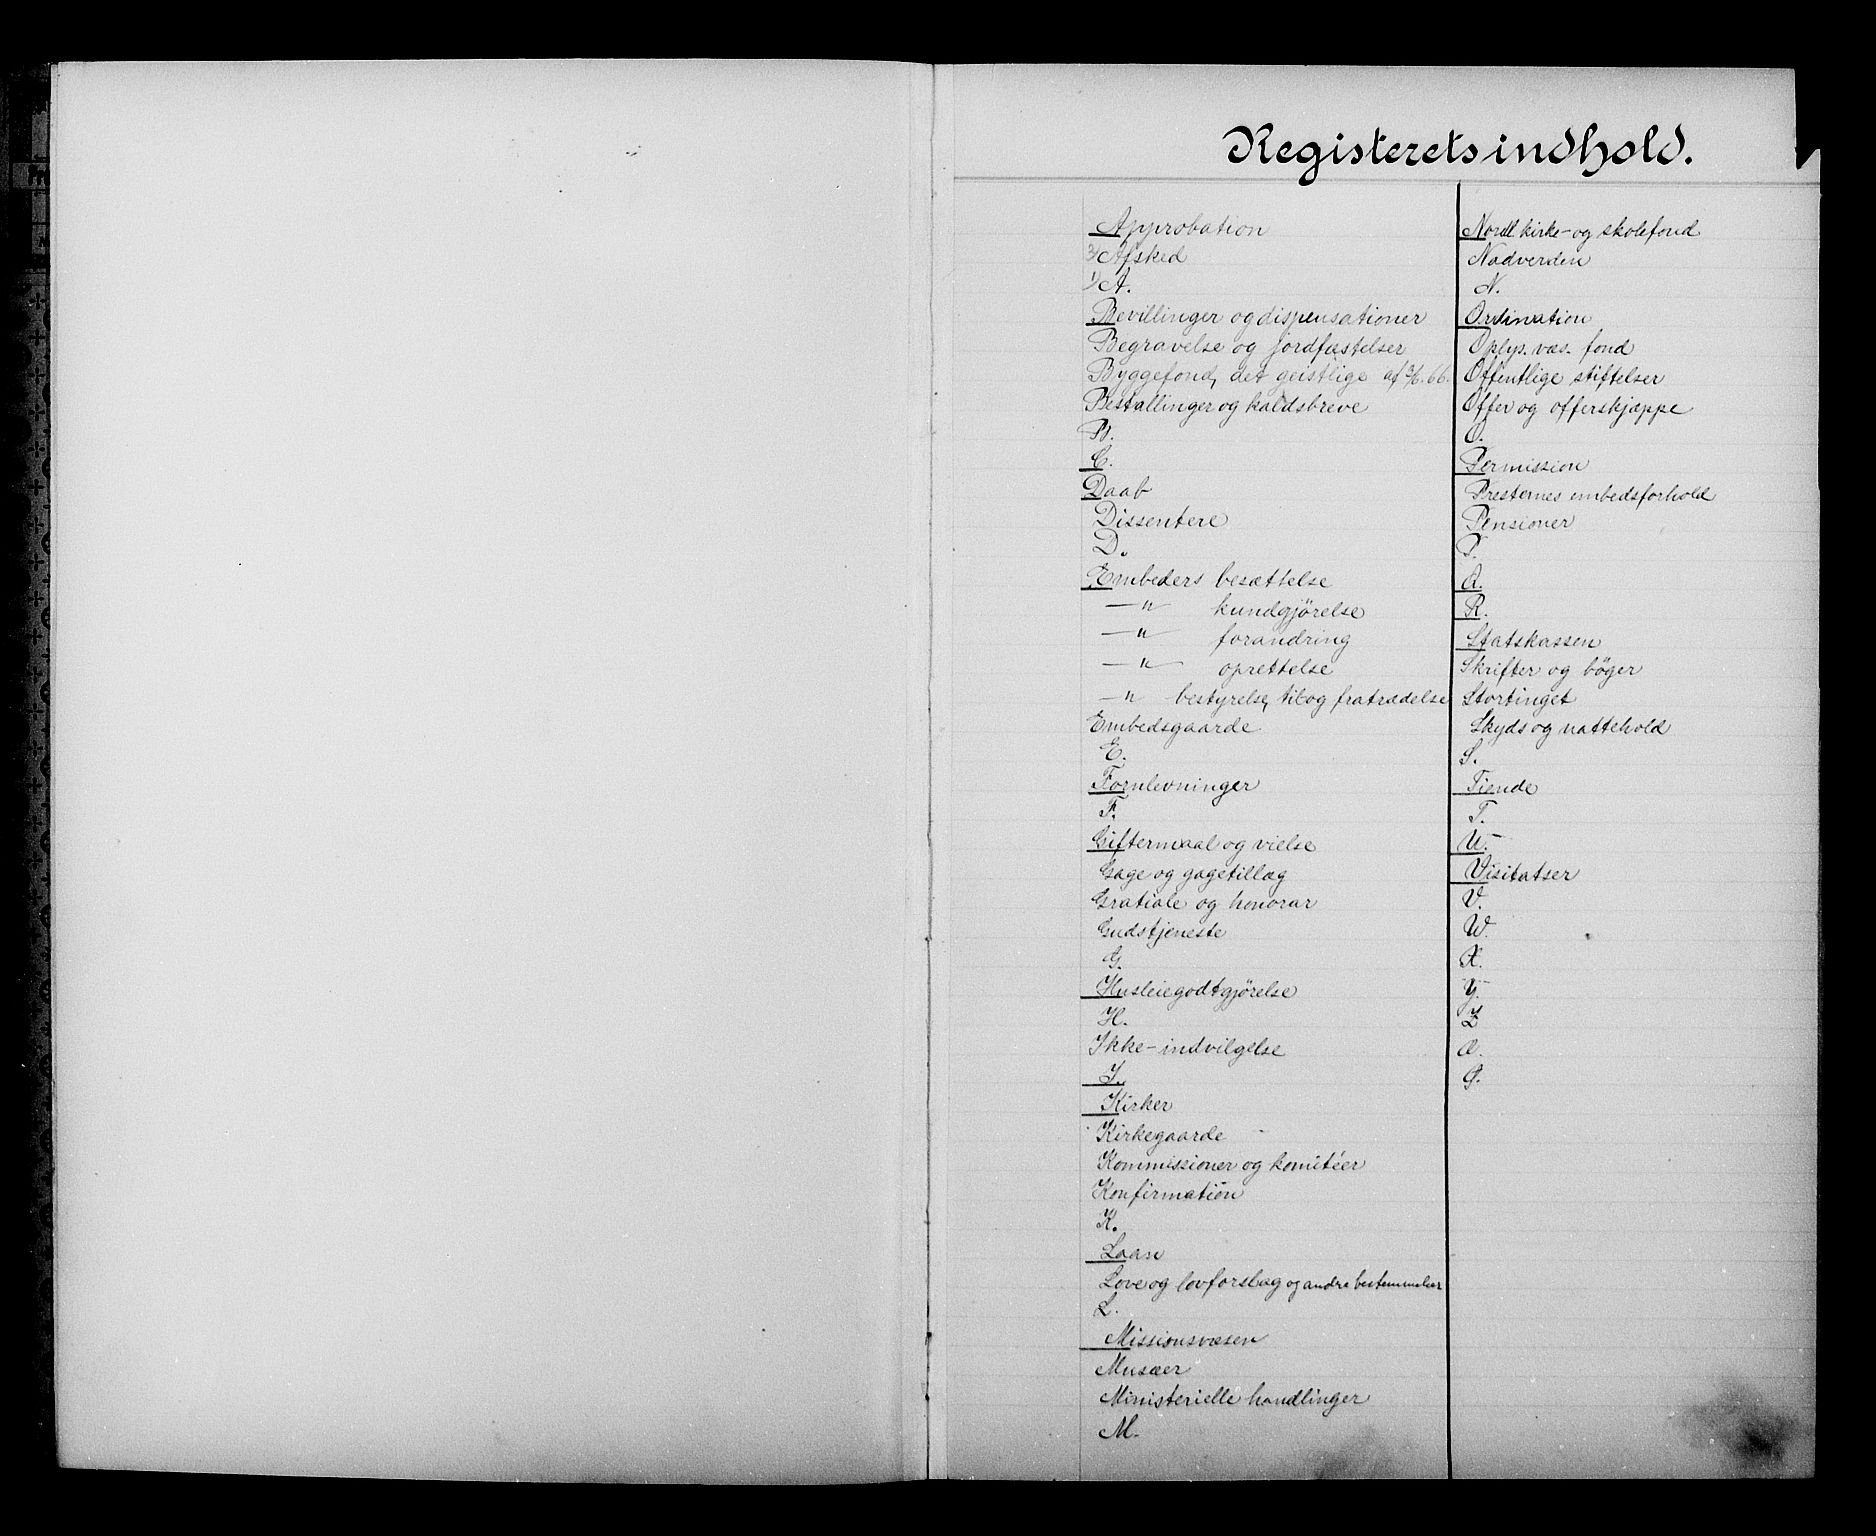 Registerets indhold.
Approbation
2/ Afsked
1/ A.
Bevillinger og dispensationer
Begravelse og jordfæstelser
Byggefond, det geistlige af 3/6.66.
Bestallinger og kaldsbreve
B.
C.
Daab
Dissentere
D.
Embeders besættelse
—"— kundgjørelse
—"— forandring
—"— oprettelse
—"— bestyrelse, til og fratrædelse
Embedsgaarde
E.
Fornlevninger
F.
Giftermaal og vielse
Gage og gagetillæg
Gratiale og honorar
Gudstjeneste
G.
Husleiegodtgjørelse
H.
Ikke-indvilgelse
I.
Kirker
Kirkegaarde
Kommissioner og komitéer
Konfirmation
K.
Laan
Love og lovforslag og andre bestemmelser
L.
Missionsvæsen
Musæer
Ministerielle handlinger
M.
Nordl kirke- og skolefond
Nadverden
N.
Ordination
Oplys. væs. fond
Offentlige stiftelser
Offer og offerskjæppe
O.
Permission
Presternes embedsforhold
Pensioner
P.
Q.
R.
Statskassen
Skrifter og bøger
Stortinget
Skyds og nattehold
S.
Tiende
T.
U.
Visitatser
V.
W.
X.
Y.
Z
Æ.
Ø.